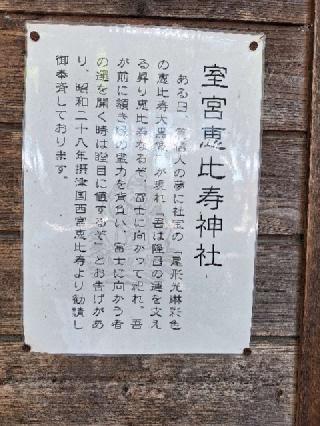 室宮恵比寿神社
ある日、篤信人の夢に社宝の「尾形光琳彩色
の恵比寿大黒」が現れ「吾は隆昌の運を支え
る昇り恵比寿なるぞ、富士に向かって祀れ。吾
が前に額き の霊力を背負い、富士に向かう者
の運を開く時は瞠目に値するぞ」とお告げがあ
り、昭和二十八年摂津国西宮恵比寿より勧請し
御奉斉しております。